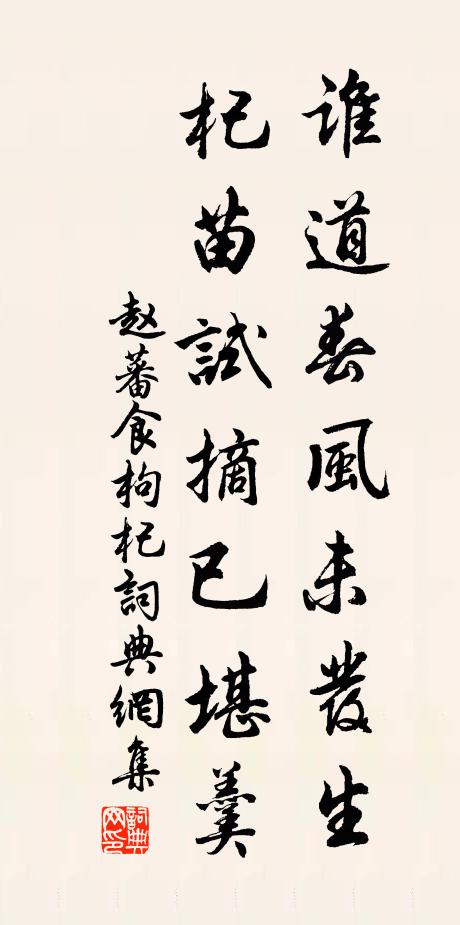 誰道春風未發生
杞苗試摘已堪羹
赵蕃食枸杞詞典網集
詞典网印